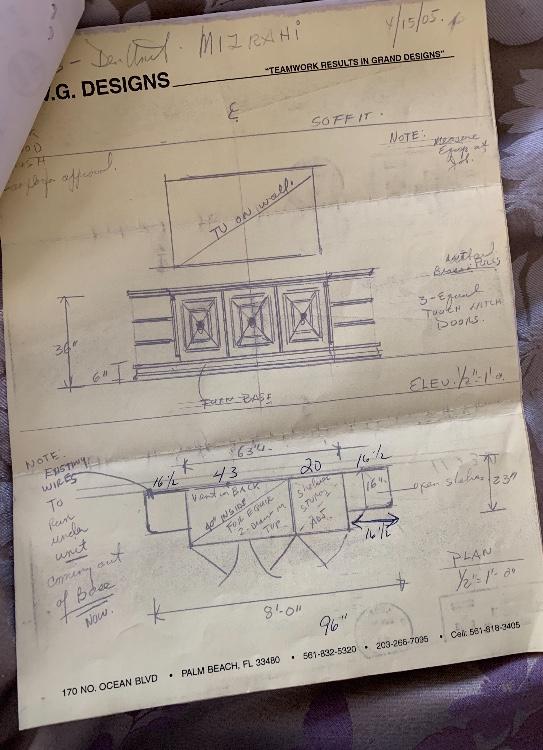 MIZRAHI
4/15/05.
.G. DESIGNS
"TEAMWORK RESULTS IN GRAND DESIGNS"
SOFFIT.
NOTE: Measure
Equip at
Job.
approval.
TV ON WALL.
3-Equal
TOUCH LATCH
DOORS.
36"
6"
BASE
ELEV. 1/2"=1'-0"
NOTE.
EXISTING
WIRES
To
Run
under
unit
coming out
of Base
Now.
63"
16 1/2
43
20
16 1/2
Vent in BACK
40" INSIDE
FOR EQUIP.
2-
TOP
Shelves
ADJ.
16"
open shelves
23"
16 1/2
PLAN
1/2"=1'-0"
8'-0"
96"
170 NO. OCEAN BLVD • PALM BEACH, FL 33480 • 561-832-5320 • 203-266-7095 • Cell: 561-818-3405